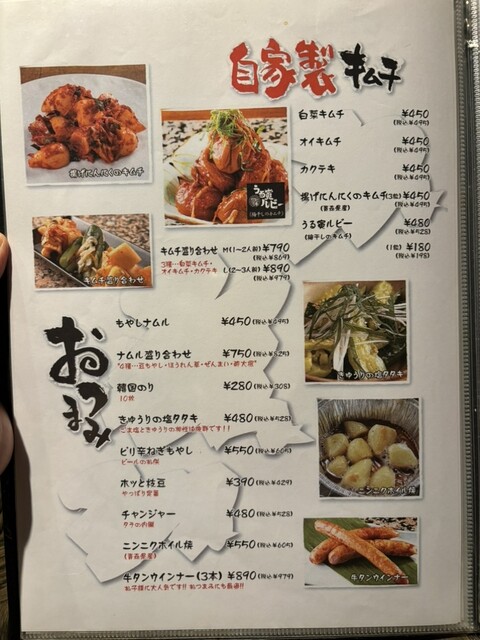 自家製キムチ
白菜キムチ ¥450
(税込¥495)
オイキムチ ¥450
(税込¥495)
カクテキ ¥450
(税込¥495)
揚げにんにくのキムチ(3粒) ¥450
(青森県産) (税込¥495)
うる寅ルビー ¥480
(梅干しのキムチ) (税込¥528)
(1粒) ¥180
(税込¥198)
揚げにんにくのキムチ
うる寅ルビー
(梅干しのキムチ)
キムチ盛り合わせ
キムチ盛り合わせ M(1~2人前) ¥790
(税込¥869)
3種…白菜キムチ・
オイキムチ・カクテキ L(2~3人前) ¥890
(税込¥979)
おつまみ
もやしナムル ¥450(税込¥495)
ナムル盛り合わせ ¥750(税込¥825)
韓国のり ¥280(税込¥308)
10枚
きゅうりの塩タタキ ¥480(税込¥528)
ごま塩ときゅうりの相性は抜群です!!
ピリ辛ねぎもやし ¥550(税込¥605)
ビールのお供
ホッと枝豆 ¥390(税込¥429)
やっぱり定番
チャンジャー ¥480(税込¥528)
タラの内臓
ニンニクホイル焼 ¥550(税込¥605)
(青森県産)
牛タンウインナー(3本) ¥890(税込¥979)
お子様に大人気です!! おつまみにも最適!!
きゅうりの塩タタキ
ニンニクホイル焼
牛タンウインナー